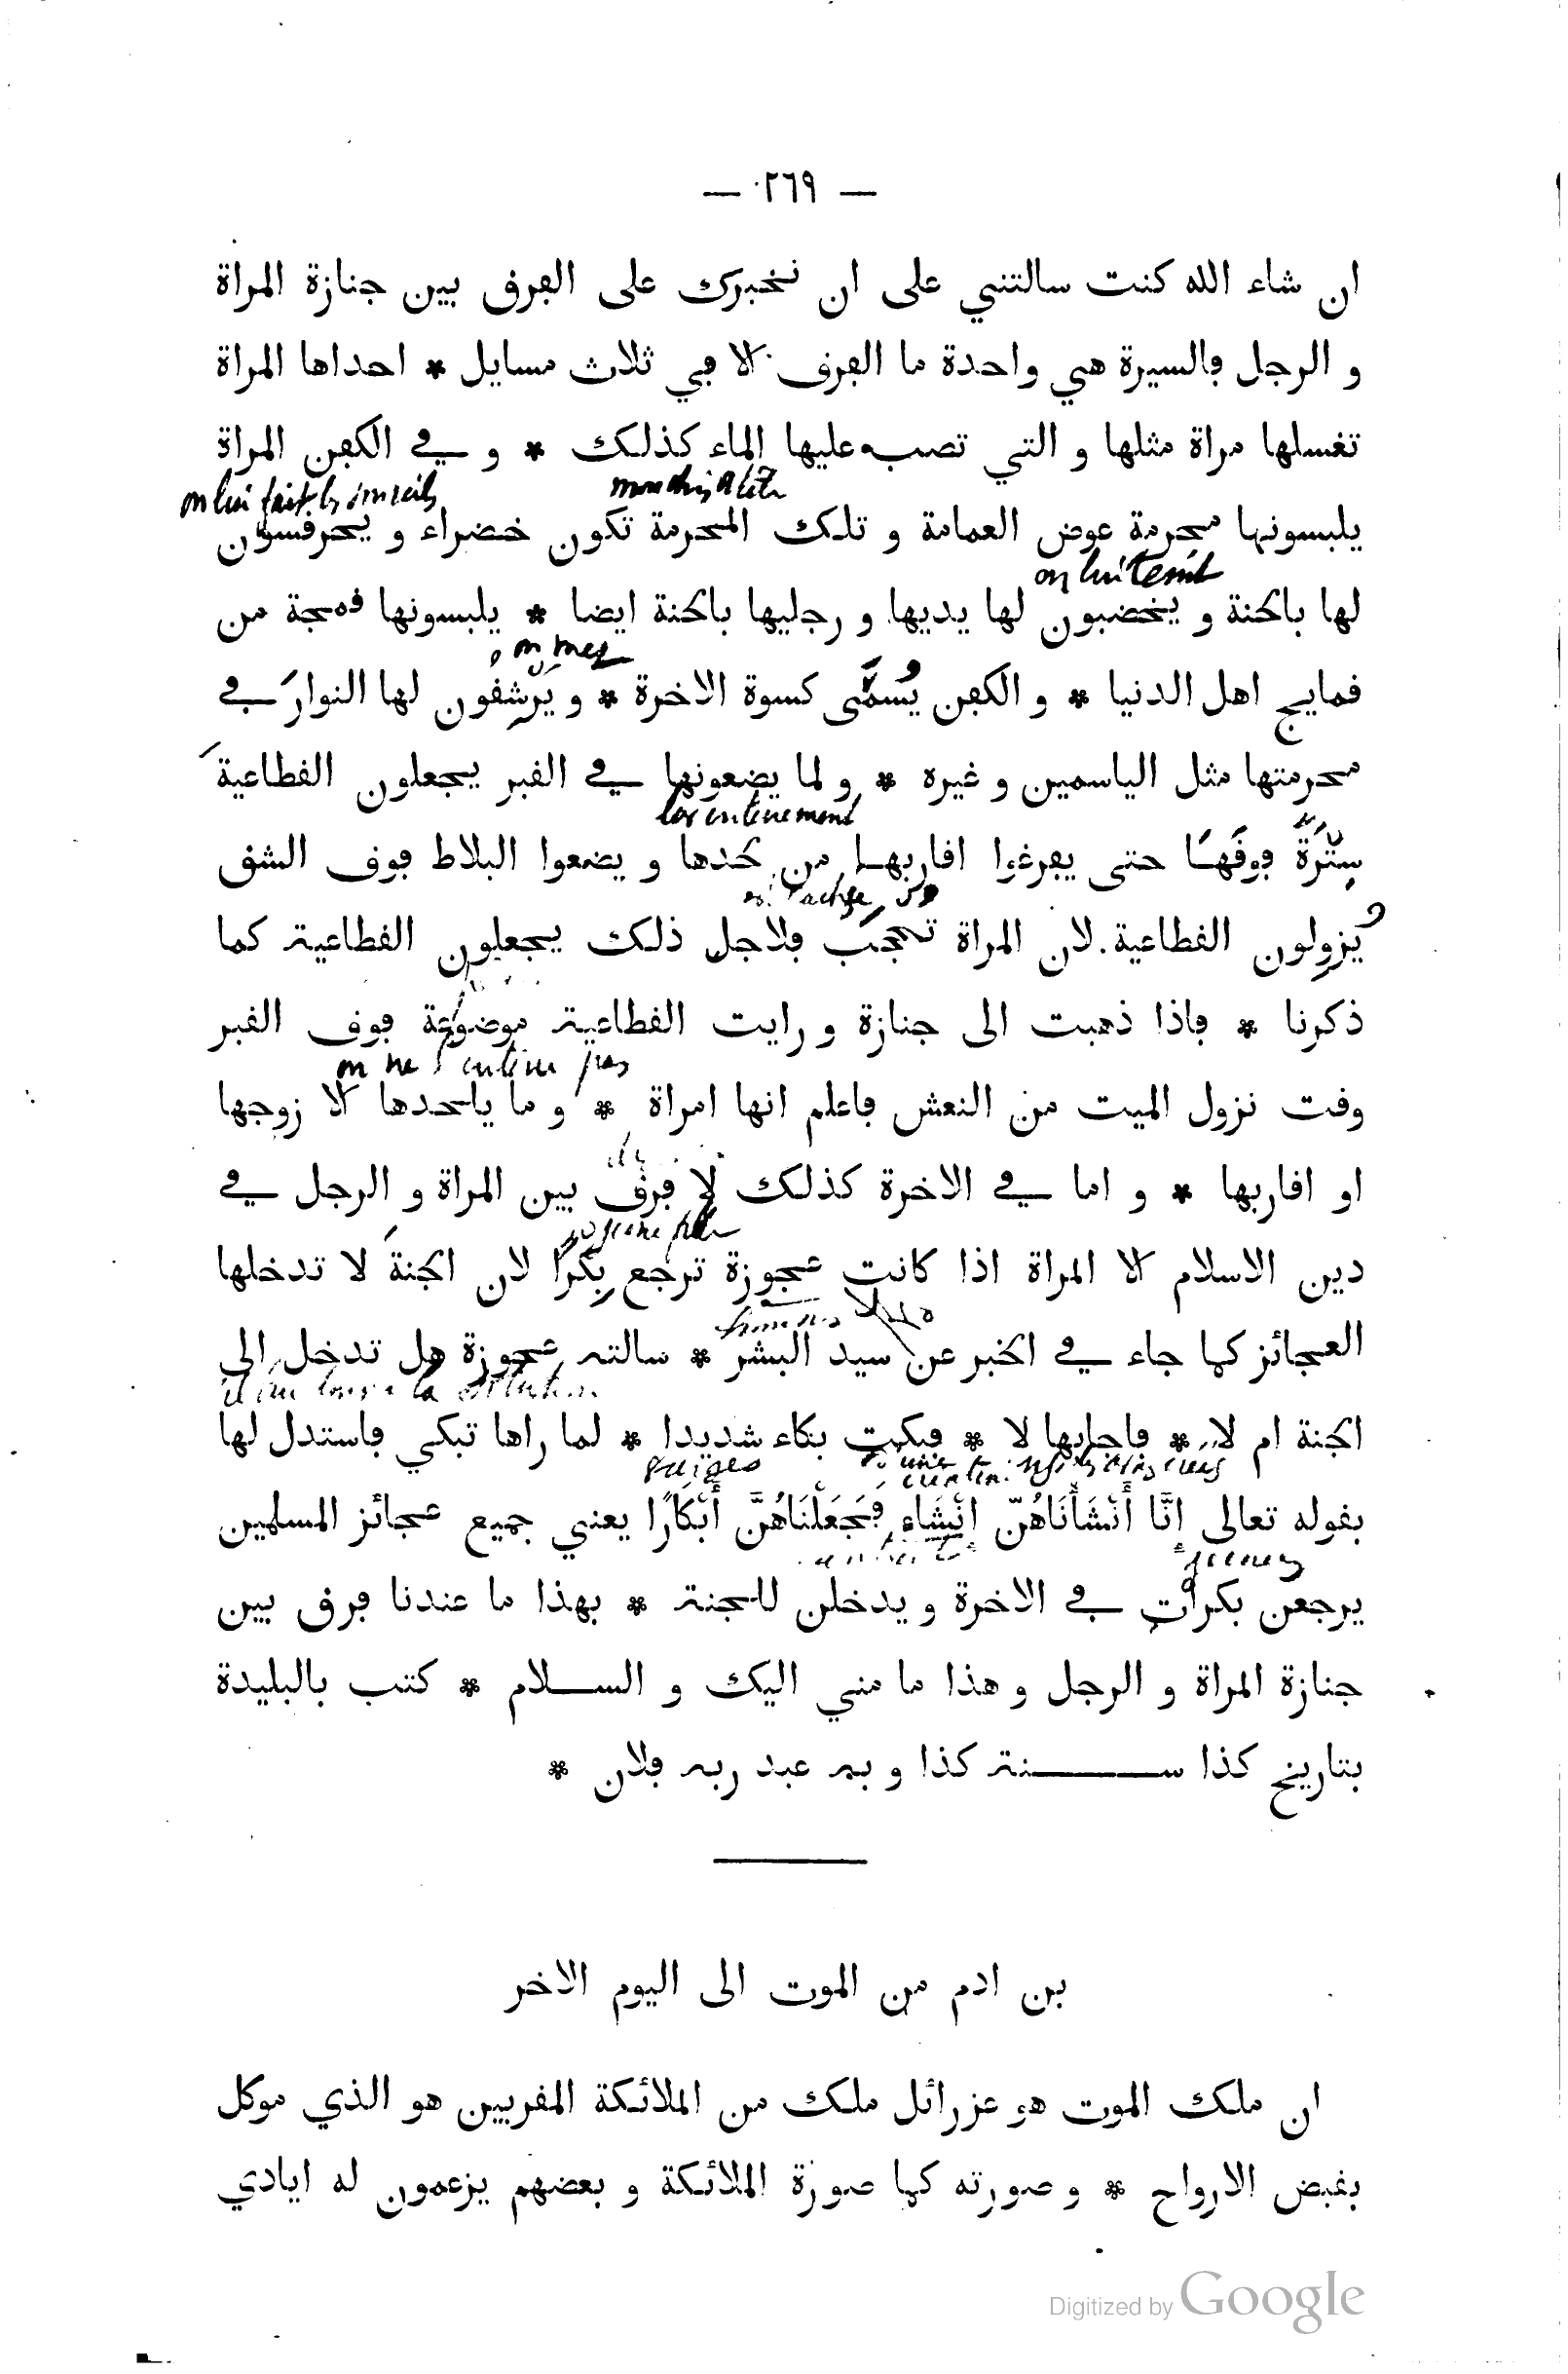 — ٢٦٩ —
ان شاء الله كنت سالتني على ان نخبرك على الفرق بين جنازة المراة
و الرجل فالسيرة هي واحدة ما الفرق الا في ثلاث مسايل * احداها المراة
تغسلها مراة مثلها و التي تصب عليها الماء كذلك * و في الكفن المراة
on lui fait les sourcils mouchoir de tête
يلبسونها محرمة عوض العمامة و تلك المحرمة تكون خضراء و يحرقسون
on lui teint
لها بالحنة و يخضبون لها يديها و رجليها بالحنة ايضا * يلبسونها قمجة من
on met
قمايج اهل الدنيا * و الكفن يُسمَّى كسوة الاخرة * و يَرشِقُون لها النوار في
محرمتها مثل الياسمين و غيره * و لما يضعونها في القبر يجعلون القطاعية
leur enterrement
سِتْرَة فوقَهَا حتى يفرغوا اقاربها من لحدها و يضعوا البلاط فوق الشق
se cache
يُزِولون القطاعية لان المراة تحجب فلاجل ذلك يجعلون القطاعية كما
ذكرنا * فاذا ذهبت الى جنازة و رايت القطاعية موضوعة فوق القبر
on ne l'enterre pas
وقت نزول الميت من النعش فاعلم انها امراة * و ما يلحدها الا زوجها
او اقاربها * و اما في الاخرة كذلك لا فرق بين المراة و الرجل في
دين الاسلام الا المراة اذا كانت عجوزة ترجع بِكْرًا لان الجنة لا تدخلها
العجائز كما جاء في الخبر عن سيد البشر * سالته عجوزة هل تدخل الى
الجنة ام لا * فاجابها لا * فبكت بكاء شديدا * لما راها تبكي فاستدل لها
vierges
بقوله تعالى إِنَّا أَنْشَأْنَاهُنَّ إِنْشَاء فَجَعَلْنَاهُنَّ أَبْكَارًا يعني جميع عجائز المسلمين
jeunes
يرجعن بكرات في الاخرة و يدخلن للجنة * بهذا ما عندنا فرق بين
جنازة المراة و الرجل و هذا ما مني اليك و السلام * كتب بالبليدة
بتاريخ كذا سنة كذا و به عبد ربه فلان *
بن ادم من الموت الى اليوم الاخر
ان ملك الموت هو عزرائل ملك من الملائكة المقربين هو الذي موكل
بقبض الارواح * و صورته كما صورة الملائكة و بعضهم يزعمون له ايادي
Digitized by Google